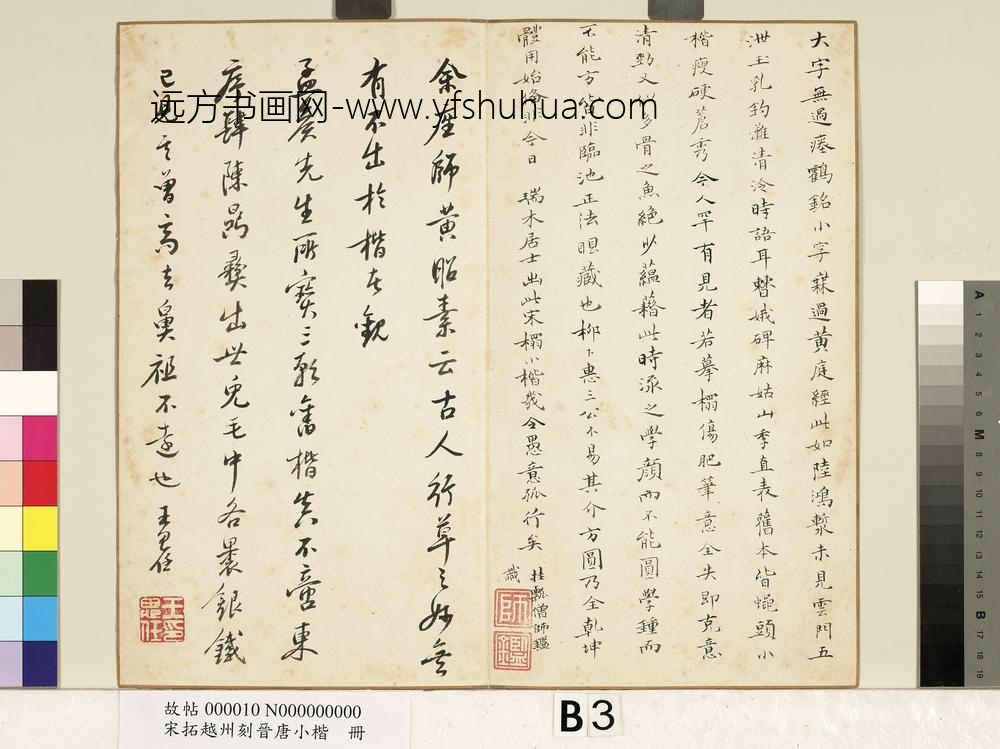 大字無過瘞鶴銘小字菻過黃庭經此如陸鴻漸未見雲門五
泄玉乳釣灘清泠時語耳曹娥碑麻姑山季直表舊本皆蠅頭小
楷瘦硬蒼秀今人罕有見者若摹榻傷肥筆意全失即克意
清勁又似多骨之魚絕少蘊藉此時流之學顏而不能圓學鍾而
不能方皆非臨池正法眼藏也柳下惠三公不易其介方圓乃全乾坤
體用始條非今日 瑞木居士出此宋榻小楷幾令愚意孤行矣
挂瓢僧師鑑
識
師
鑑
余座師黃昭素云古人行草之妙無
有不出於楷者觀
孟 先生所寶三 舊楷真不啻東
序肆陳 彞出世兔毛中各裹銀鐵
已見其曾高去鼻祖不遠也 王思任
王思任印
远方书画网-www.yfshuhua.com
故帖 000010 N000000000
宋拓越州刻晉唐小楷 冊
B3
A 1 2 3 4 5 6 M 8 9 10 11 12 13 14 15 B 17 18 19